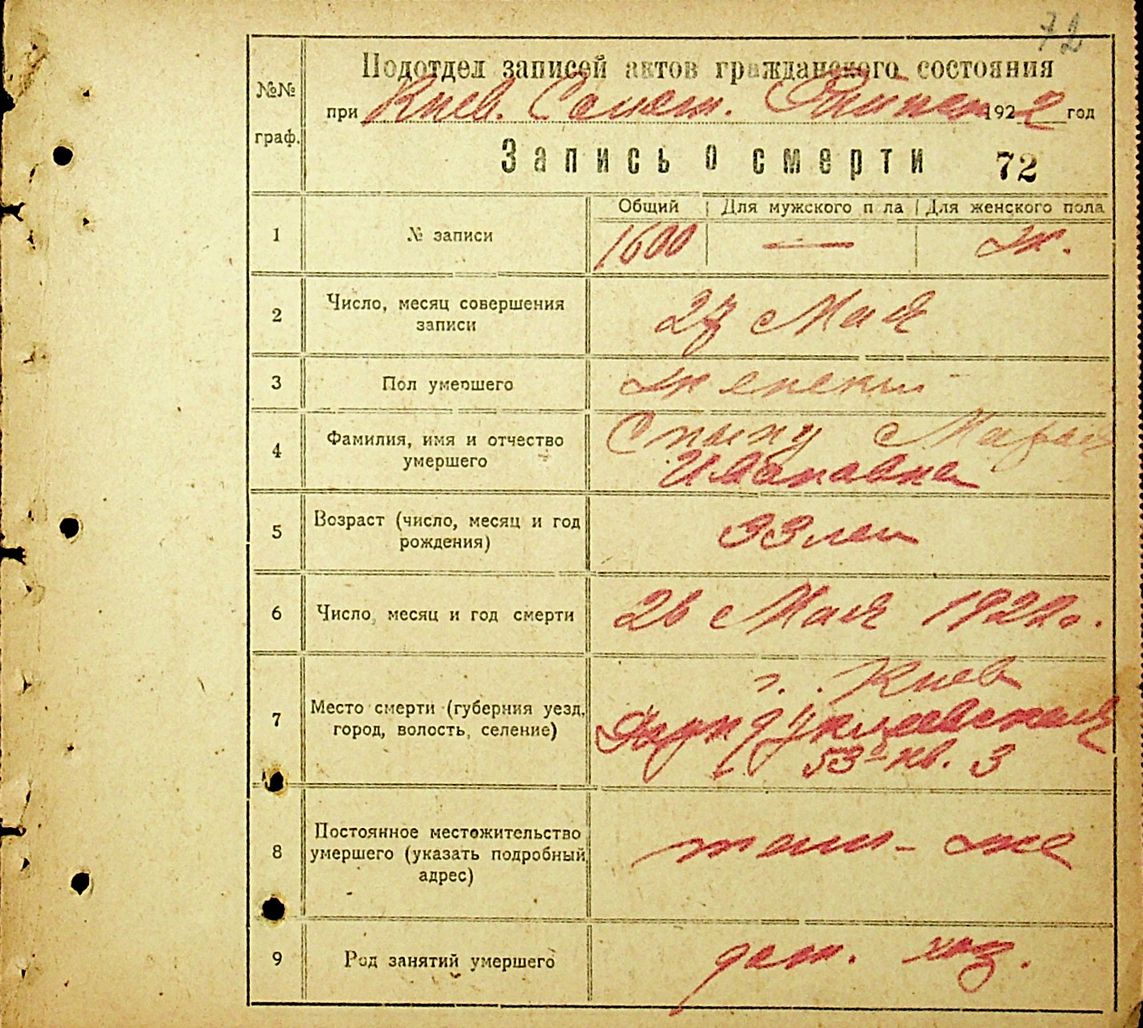 72
Подотдел записей актов гражданского состояния
№№ граф.
при Киев. 1922 год
Запись о смерти 72
Общий Для мужского пола Для женского пола
1 № записи 1600 — ж.
2 Число, месяц совершения 27 Мая
записи
3 Пол умершего женский
4 Фамилия, имя и отчество Мария
умершего Ивановна
5 Возраст (число, месяц и год 33 лет
рождения)
6 Число, месяц и год смерти 26 Мая 1922 г.
г. Киев
7 Место смерти (губерния уезд,
город, волость, селение)
53 кв. 3
Постоянное местожительство
8 умершего (указать подробный там-же
адрес)
9 Род занятий умершего дом. хоз.